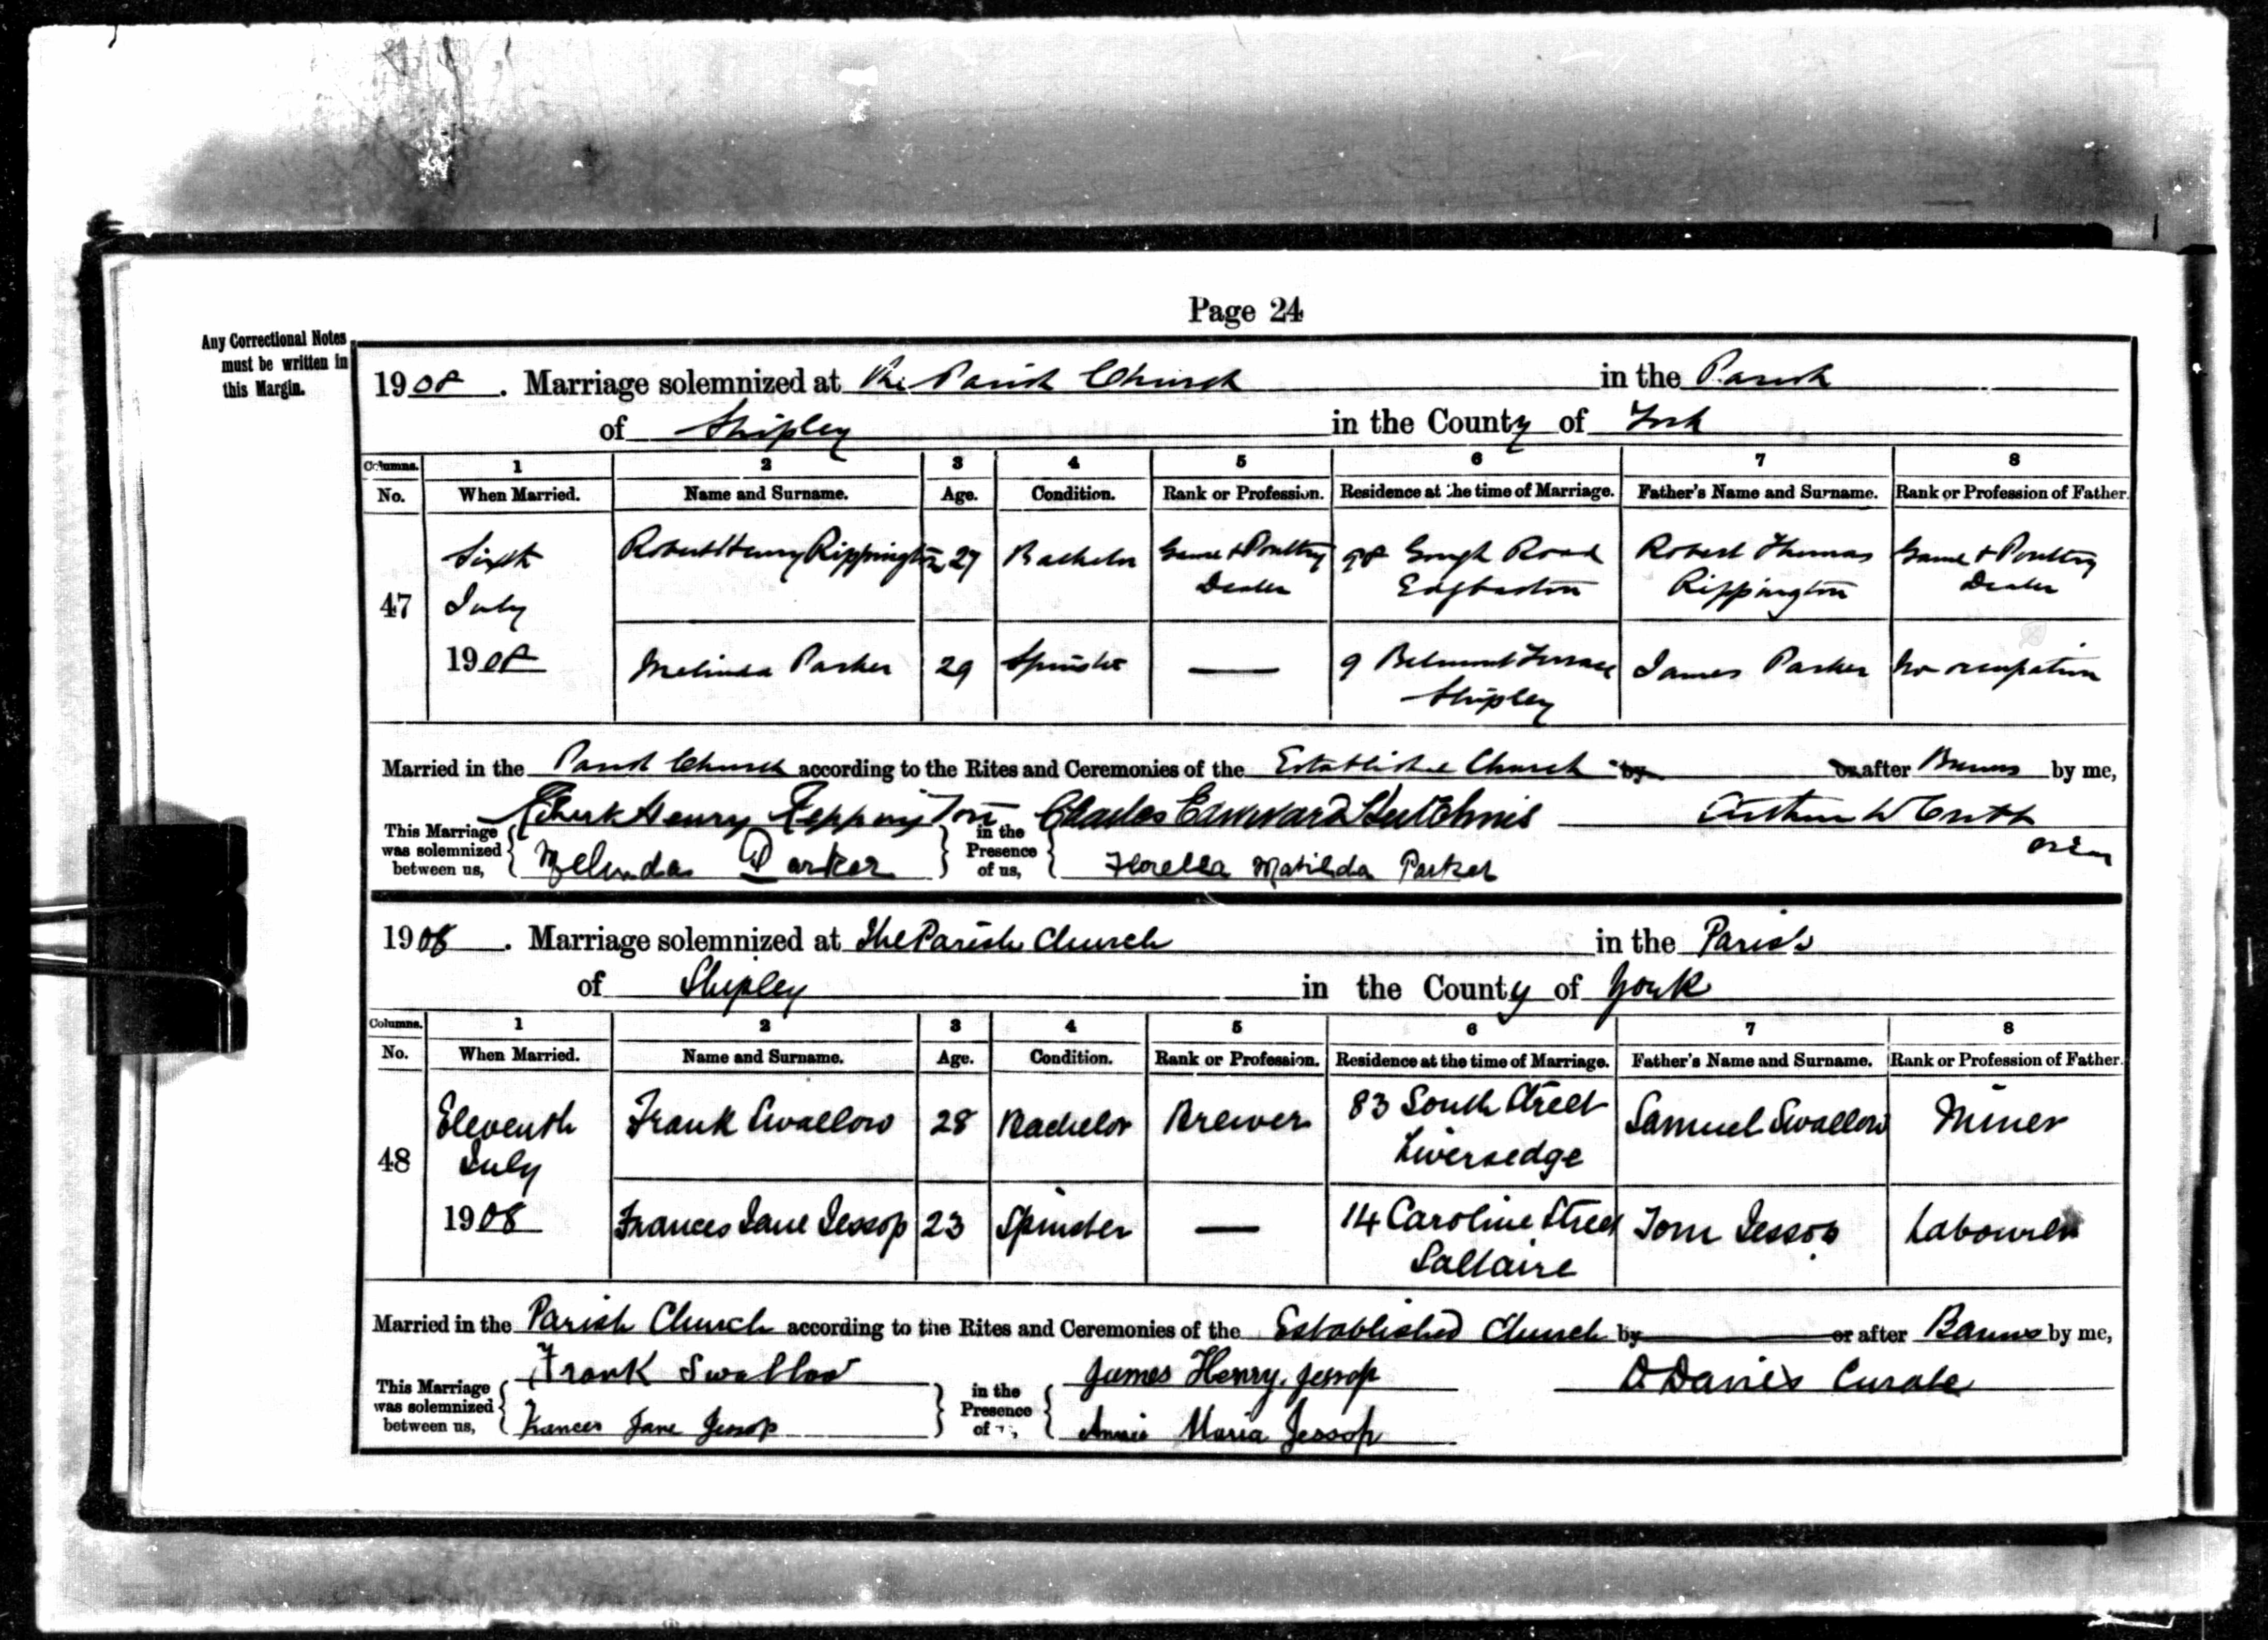 Page 24
Any Correctional Notes
must be written in
this Margin.
1908. Marriage solemnized at The Parish Church in the Parish
of Shipley in the County of York
Columns. 1 2 3 4 5 6 7 8
No. When Married. Name and Surname. Age. Condition. Rank or Profession. Residence at the time of Marriage. Father's Name and Surname. Rank or Profession of Father.
47 Sixth July 1908 Robert Henry Rippington 27 Bachelor Game & Poultry Dealer 98 Gough Road Edgbaston Robert Thomas Rippington Game & Poultry Dealer
Melinda Parker 29 Spinster — 9 Belmont Terrace Shipley James Parker No occupation
Married in the Parish Church according to the Rites and Ceremonies of the Established Church by or after Banns by me,
Robert Henry Rippington Charles Edward Hutchins Arthur W
This Marriage was solemnized between us, Melinda Parker in the Presence of us, Florella Matilda Parker
1908. Marriage solemnized at The Parish Church in the Parish
of Shipley in the County of York
Columns. 1 2 3 4 5 6 7 8
No. When Married. Name and Surname. Age. Condition. Rank or Profession. Residence at the time of Marriage. Father's Name and Surname. Rank or Profession of Father.
48 Eleventh July 1908 Frank Swallow 28 Bachelor Brewer 83 South Street Liversedge Samuel Swallow Miner
Frances Jane Jessop 23 Spinster — 14 Caroline Street Saltaire Tom Jessop Labourer
Married in the Parish Church according to the Rites and Ceremonies of the Established Church by or after Banns by me,
Frank Swallow James Henry Jessop D Davies Curate
This Marriage was solemnized between us, Frances Jane Jessop in the Presence of us, Annie Maria Jessop